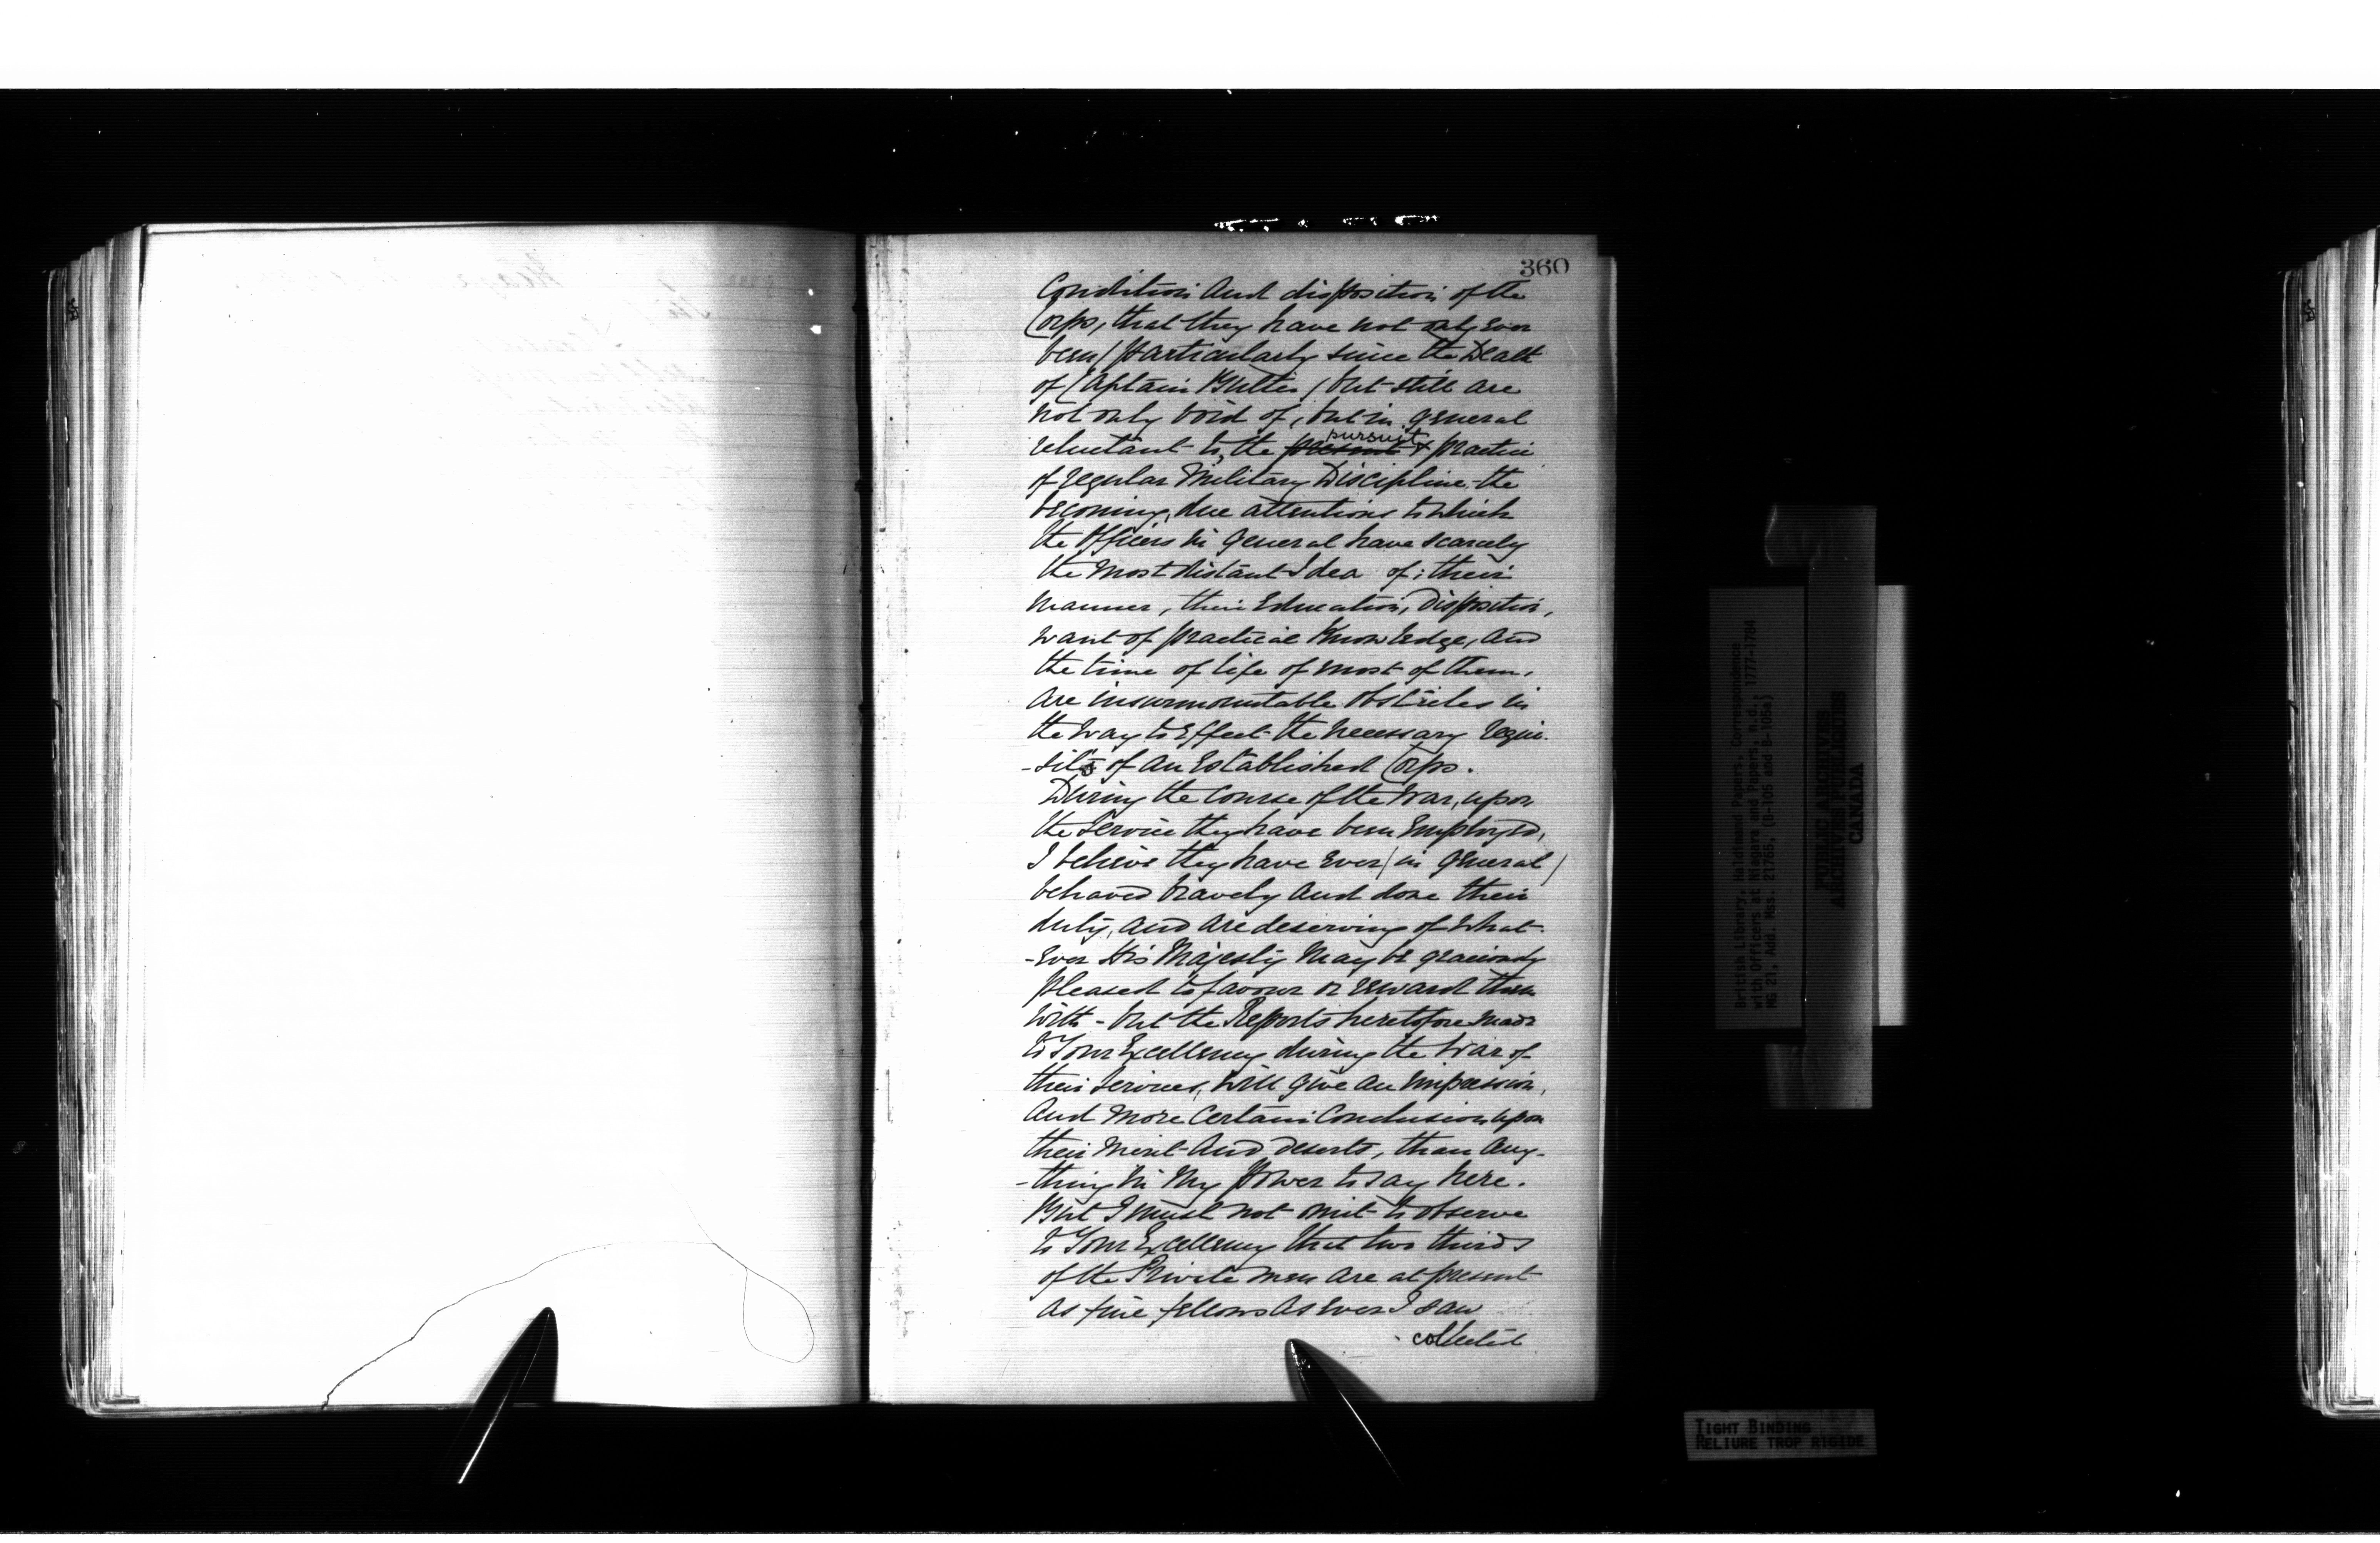 360
Condition and disposition of the
Corps, that they have not only ever
been / particularly since the Death
of Captain Butler / but still are
not only void of, but in general
reluctant to, the present pursuit & practice
of regular Military Discipline, the
becoming, due attentions to which
the Officers in General have scarcely
the most distant Idea of; their
Manner, their Education, Disposition,
want of practical Knowledge, and
the time of life of most of them,
are insurmountable Obstacles in
the way to Effect the necessary requi-
-sites of an Established Corps.
During the Course of the War, upon
the Service they have been Employed,
I believe they have ever / in General /
behaved bravely and done their
duty, and are deserving of what-
-ever His Majesty may be graciously
pleased to favour or reward them
with - but the Reports heretofore made
to Your Excellency during the War of
their Services, will give an impression,
and more certain Conclusion upon
their Merit and deserts, than any-
-thing in my power to say here.
But I must not omit to observe
to Your Excellency that two thirds
of the Private men are at present
as fine fellows as ever I saw
collected
British Library, Haldimand Papers, Correspondence
with Officers at Niagara and Papers, n.d., 1777-1784
MG 21, Add. Mss. 21765, (B-105 and B-105a)
PUBLIC ARCHIVES
ARCHIVES PUBLIQUES
CANADA
TIGHT BINDING
RELIURE TROP RIGIDE